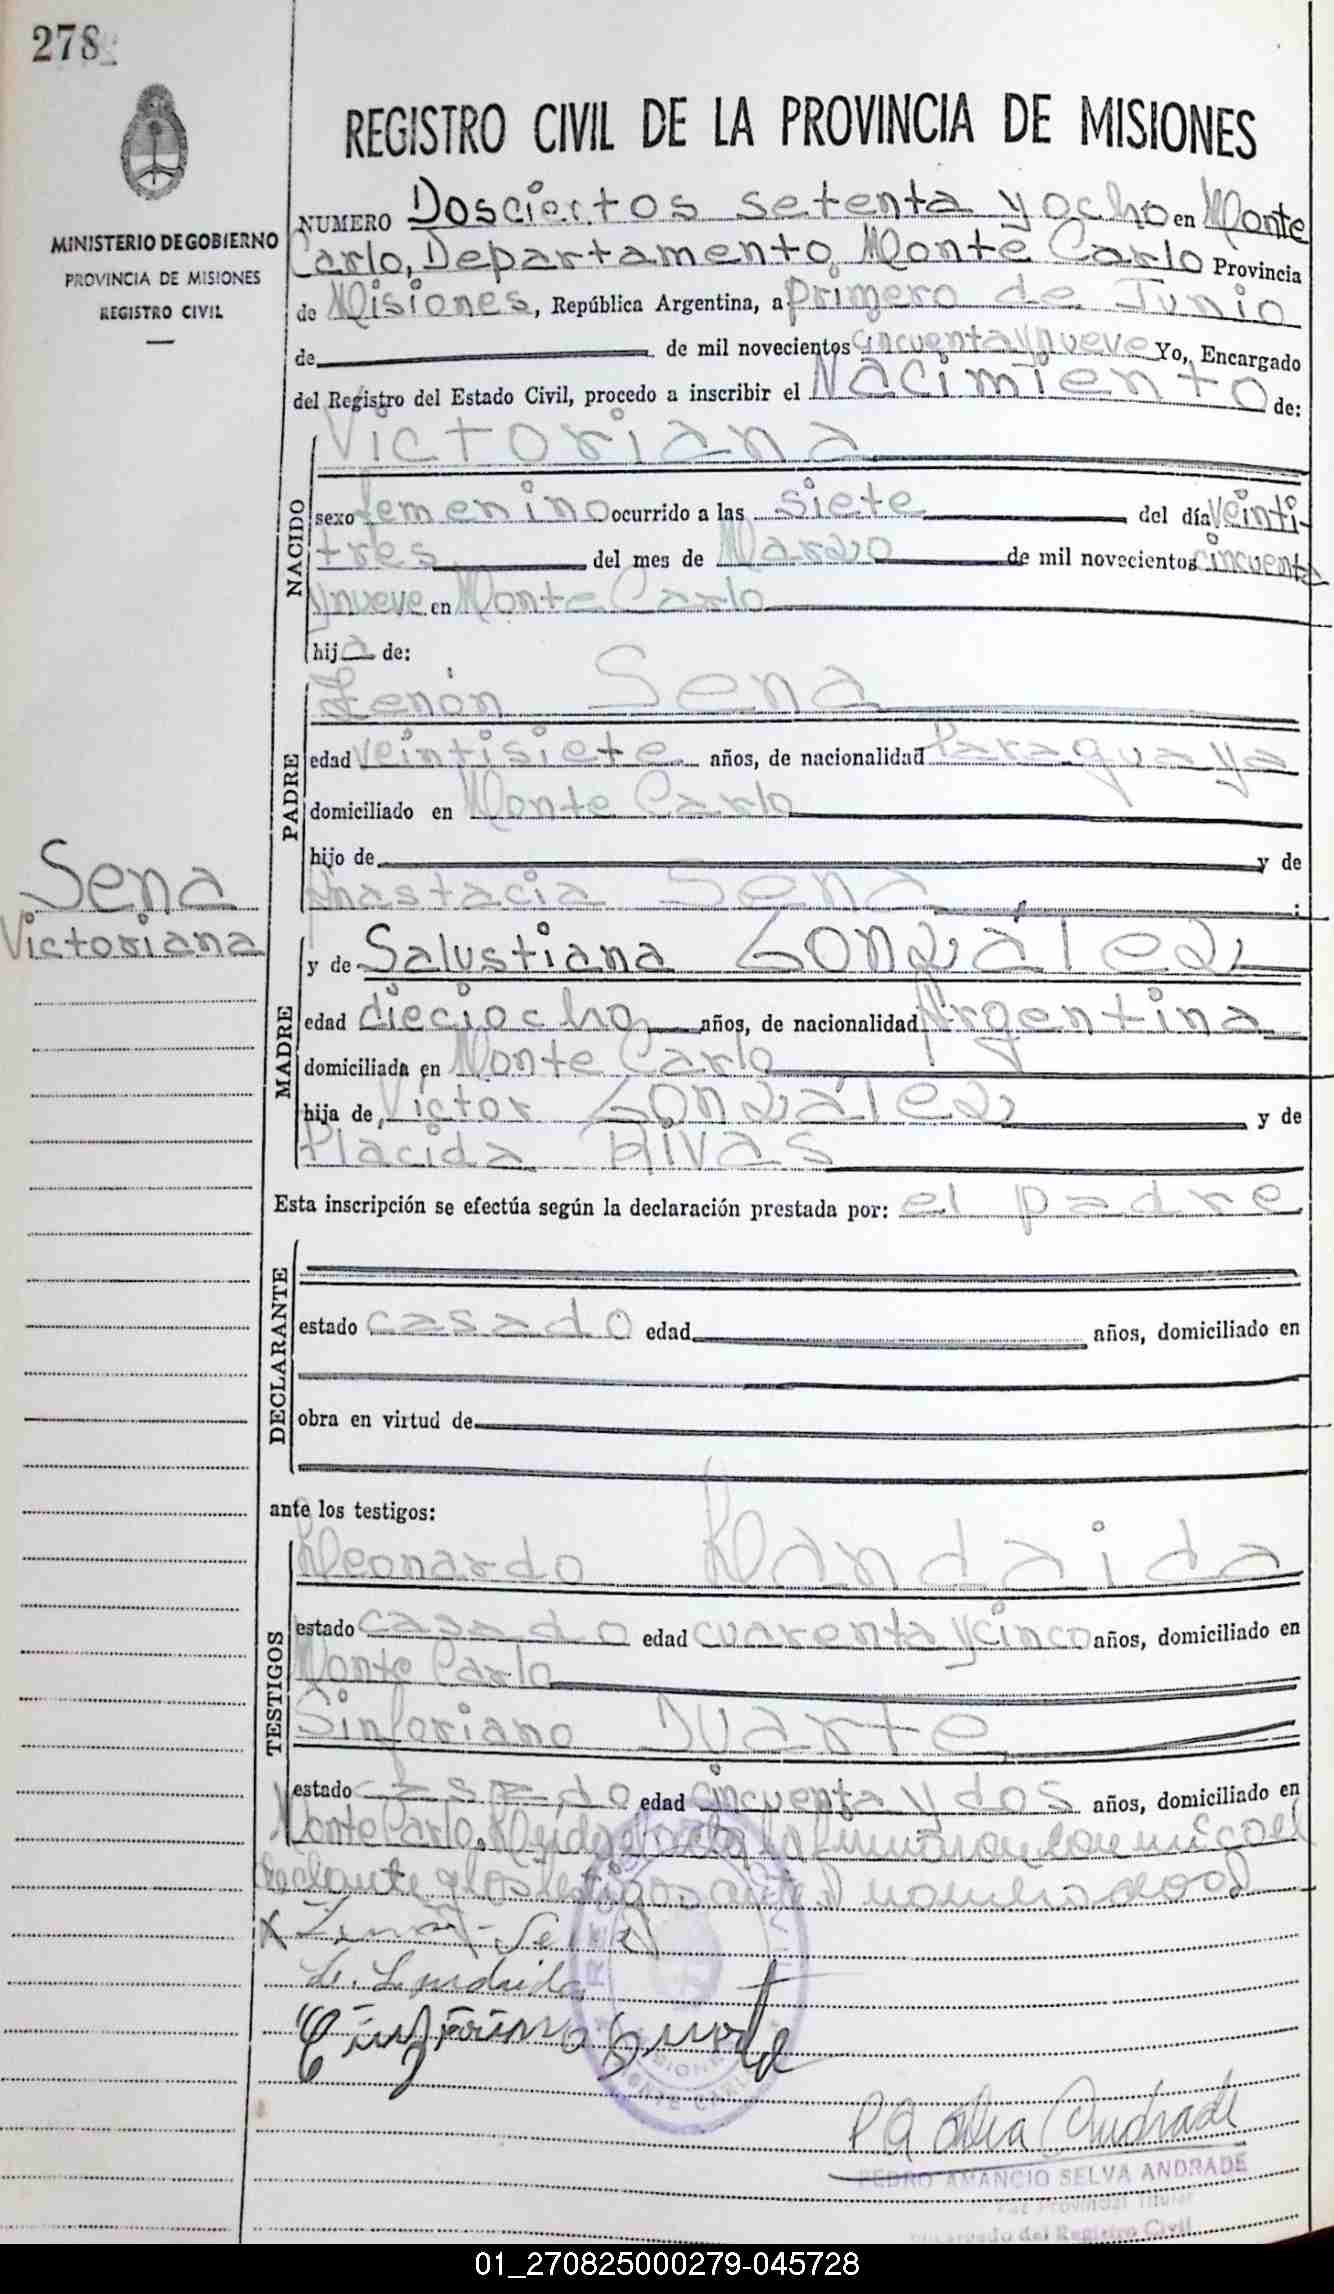 278
MINISTERIO DE GOBIERNO
PROVINCIA DE MISIONES
REGISTRO CIVIL
REGISTRO CIVIL DE LA PROVINCIA DE MISIONES
NUMERO Doscientos setenta y ocho en Monte
Carlo, Departamento Monte Carlo Provincia
de Misiones, República Argentina, a primero de Junio
de de mil novecientos cincuenta y nueve Yo, Encargado
del Registro del Estado Civil, procedo a inscribir el Nacimiento de:
NACIDO
Victoriana
sexo femenino ocurrido a las siete del día veinti-
tres del mes de Marzo de mil novecientos cincuenta
y nueve en Monte Carlo
hija de:
PADRE
Zenón Sena
edad veintisiete años, de nacionalidad Paraguaya
domiciliado en Monte Carlo
hijo de y de
Anastacia Sena
Sena
Victoriana
MADRE
y de Salustiana González
edad dieciocho años, de nacionalidad Argentina
domiciliada en Monte Carlo
hija de Victor González y de
Placida Rivas
Esta inscripción se efectúa según la declaración prestada por: el padre
DECLARANTE
estado casado edad años, domiciliado en
obra en virtud de
ante los testigos:
TESTIGOS
Leonardo Landaida
estado casado edad cuarenta y cinco años, domiciliado en
Monte Carlo
Sinforiano Duarte
estado casado edad cincuenta y dos años, domiciliado en
Monte Carlo. Leida el acta la firmaron conmigo el
declarante y los testigos antes nombrados
X Zenon Sena
L. Landaida
Sinforiano Duarte
P A Selva Andrade
PEDRO AMANCIO SELVA ANDRADE
Juez Provincial Titular
Encargado del Registro Civil
01_270825000279-045728